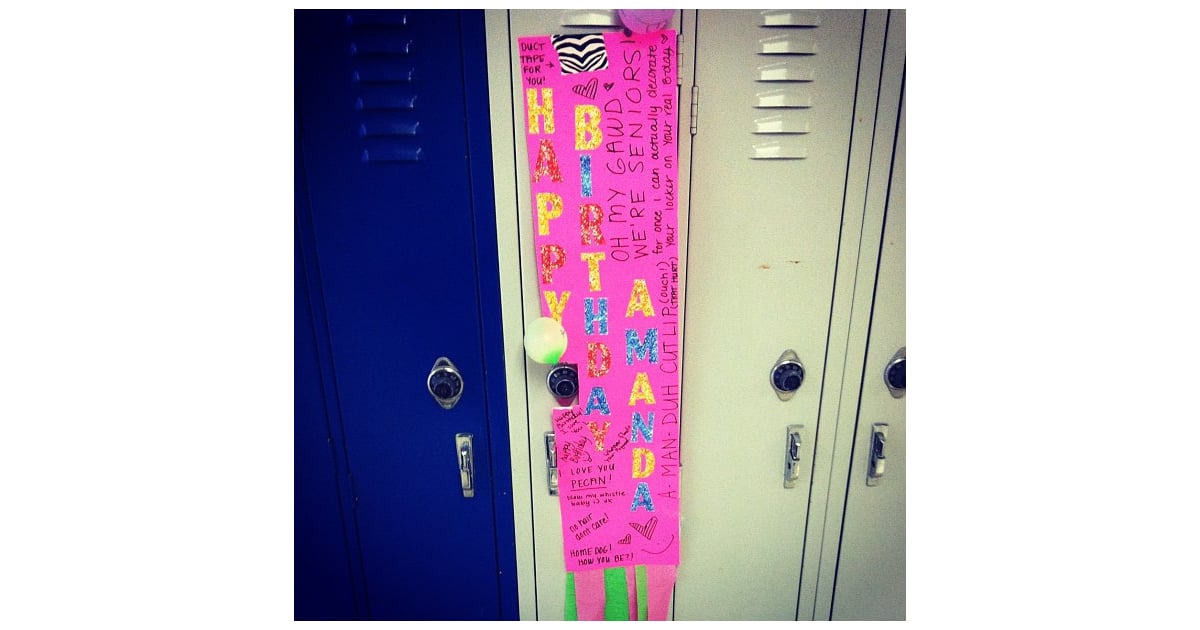 DUCT
TAPE
FOR
YOU!
HAPPY
BIRTHDAY
AMANDA
OH MY GAWD
WE'RE SENIORS!
for once I can actually decorate
your locker on your real B-day
A-MAN-DUH CUTLIP (ouch!)
(THAT HURT)
Happy
Birthday
I love
You
Happy
Birthday
LOVE YOU
PECAN!
blow my whistle
baby
no hair
don't care!
HOME DOG!
HOW YOU BE?!